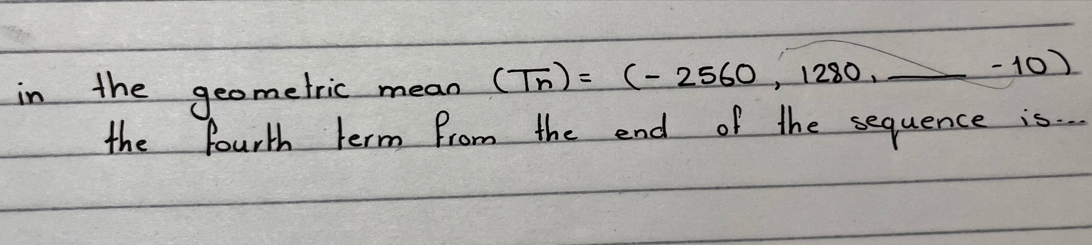 in the geometric mean (Tn) = (- 2560 , 1280, ____ -10)
the fourth term from the end of the sequence is...